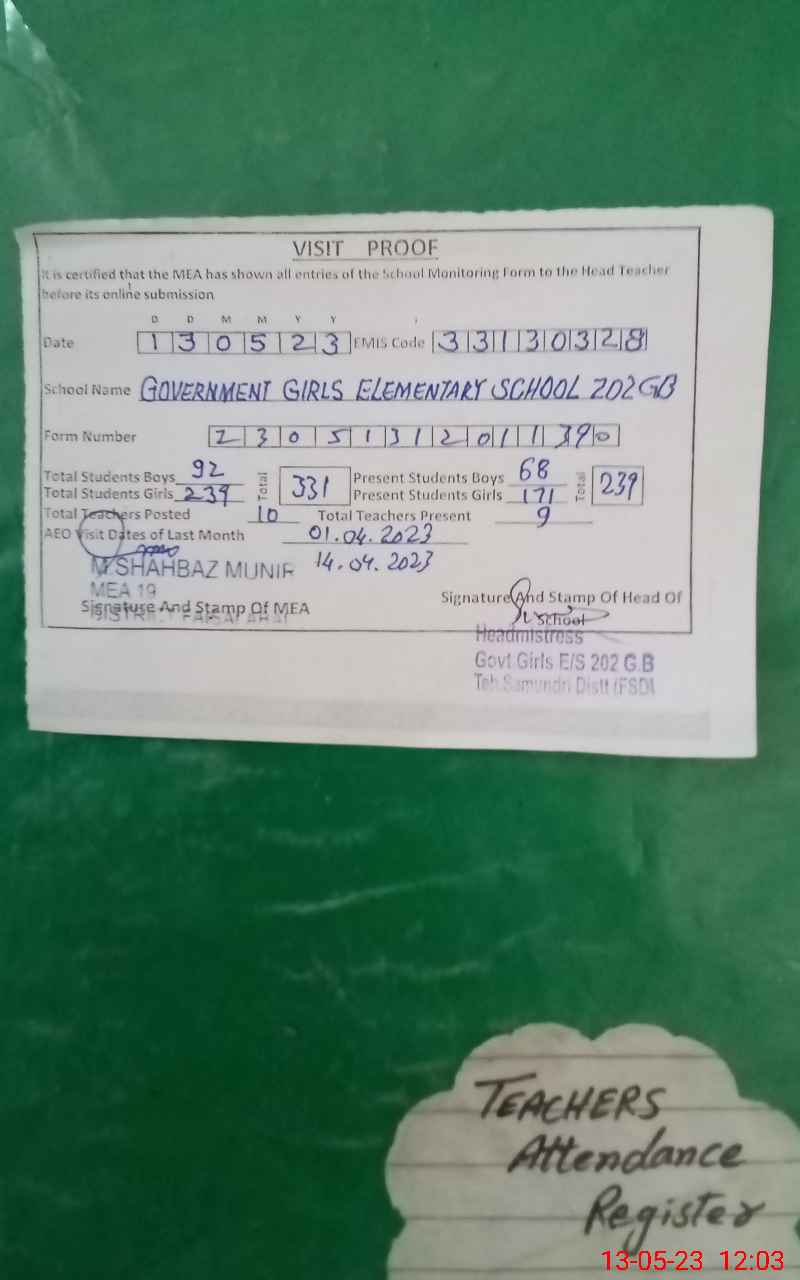 VISIT PROOF
It is certified that the MEA has shown all entries of the School Monitoring Form to the Head Teacher
before its online submission
D D M M Y Y
Date 1 3 0 5 2 3 EMIS Code 3 3 1 3 0 3 2 8
School Name GOVERNMENT GIRLS ELEMENTARY SCHOOL 202GB
Form Number 2 3 0 5 1 3 1 2 0 1 1 1 3 9 0
Total Students Boys 92 Total 331 Present Students Boys 68 Total 239
Total Students Girls 239 Present Students Girls 171
Total Teachers Posted 10 Total Teachers Present 9
AEO Visit Dates of Last Month 01.04.2023
14.04.2023
M.SHAHBAZ MUNIR
MEA 19
DISTRICT FAISALABAD
Signature And Stamp Of MEA
Signature And Stamp Of Head Of
School
Headmistress
Govt Girls E/S 202 G.B
Teh Samundri Distt (FSD)
TEACHERS
Attendance
Register
13-05-23 12:03